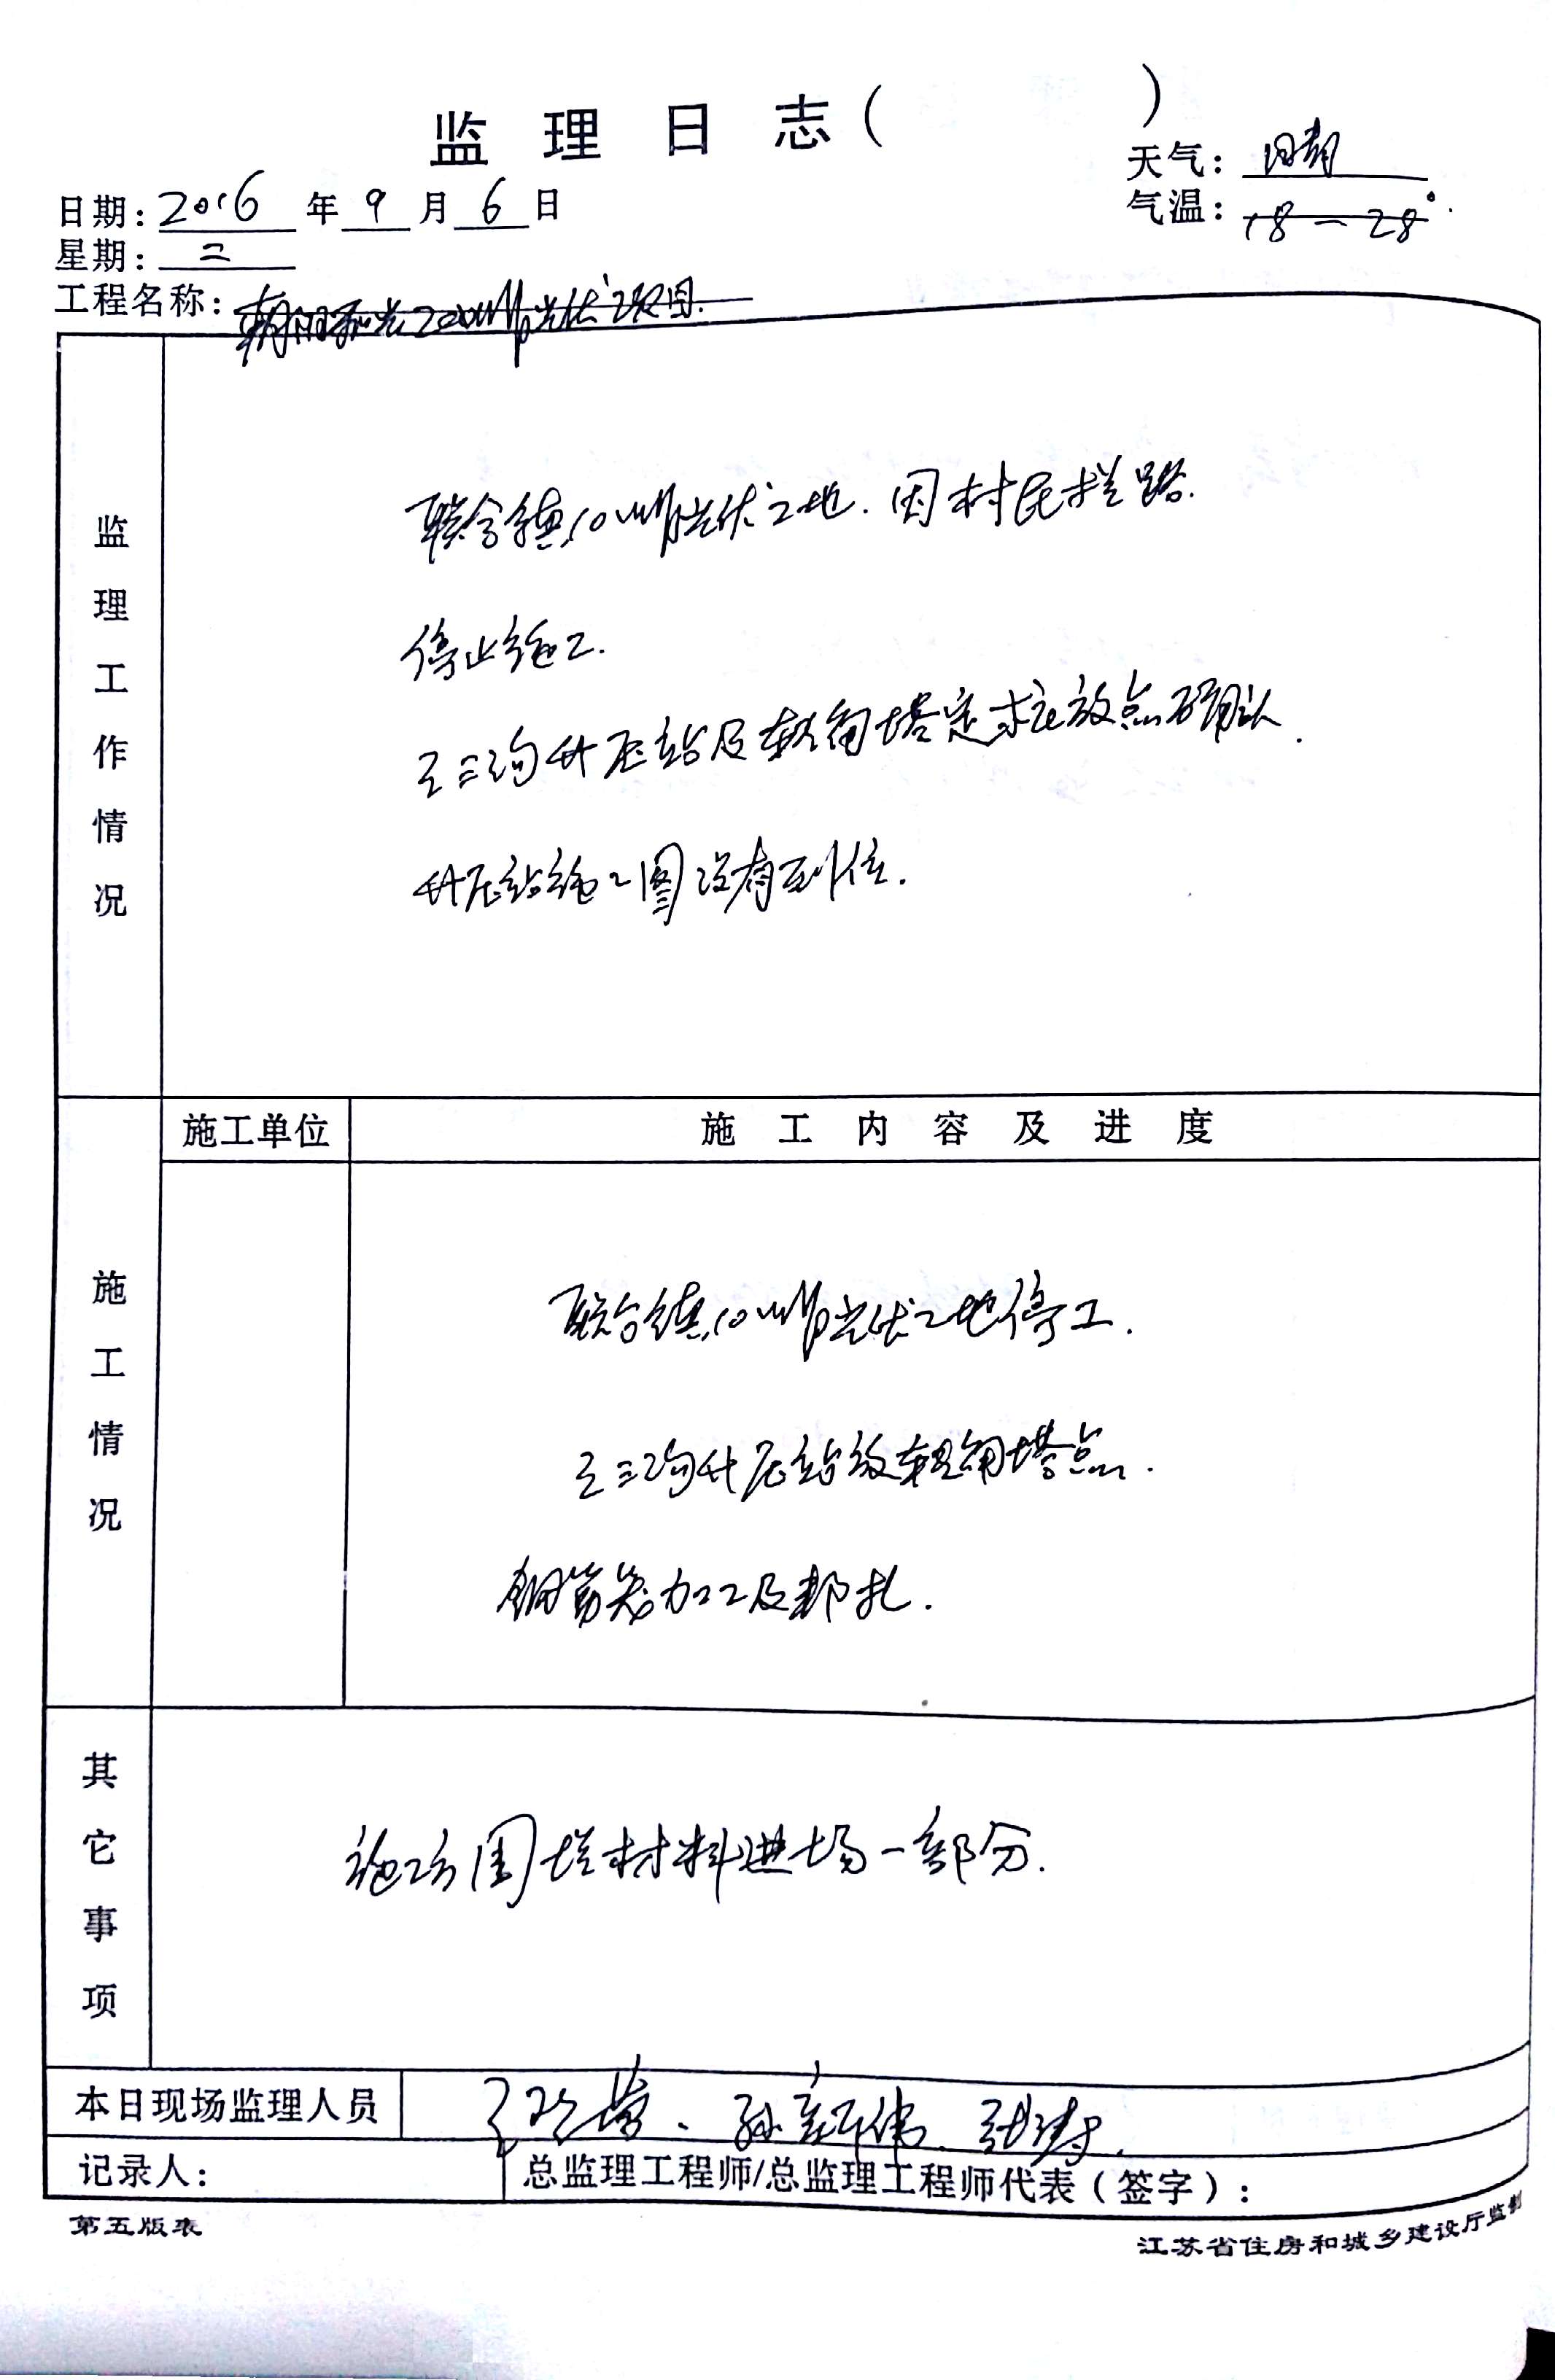 监理日志（ ）
天气：晴
日期：2016年9月6日
气温：18—28°.
星期：二
工程名称：朝阳和光200MWp光伏项目.
监理工作情况
联合镇10MWp光伏工地.因村民拦路.
停止施工.
王三沟升压站及转角塔定桩放点确认.
升压站施工图没有到位.
施工单位
施工内容及进度
施工情况
联合镇10MWp光伏工地停工.
王三沟升压站放转角塔点.
钢筋笼加工及邦扎.
其它事项
施工方围挡材料进场一部分.
本日现场监理人员 孙新伟、张涛.
记录人：
总监理工程师/总监理工程师代表（签字）：
第五版表
江苏省住房和城乡建设厅监制